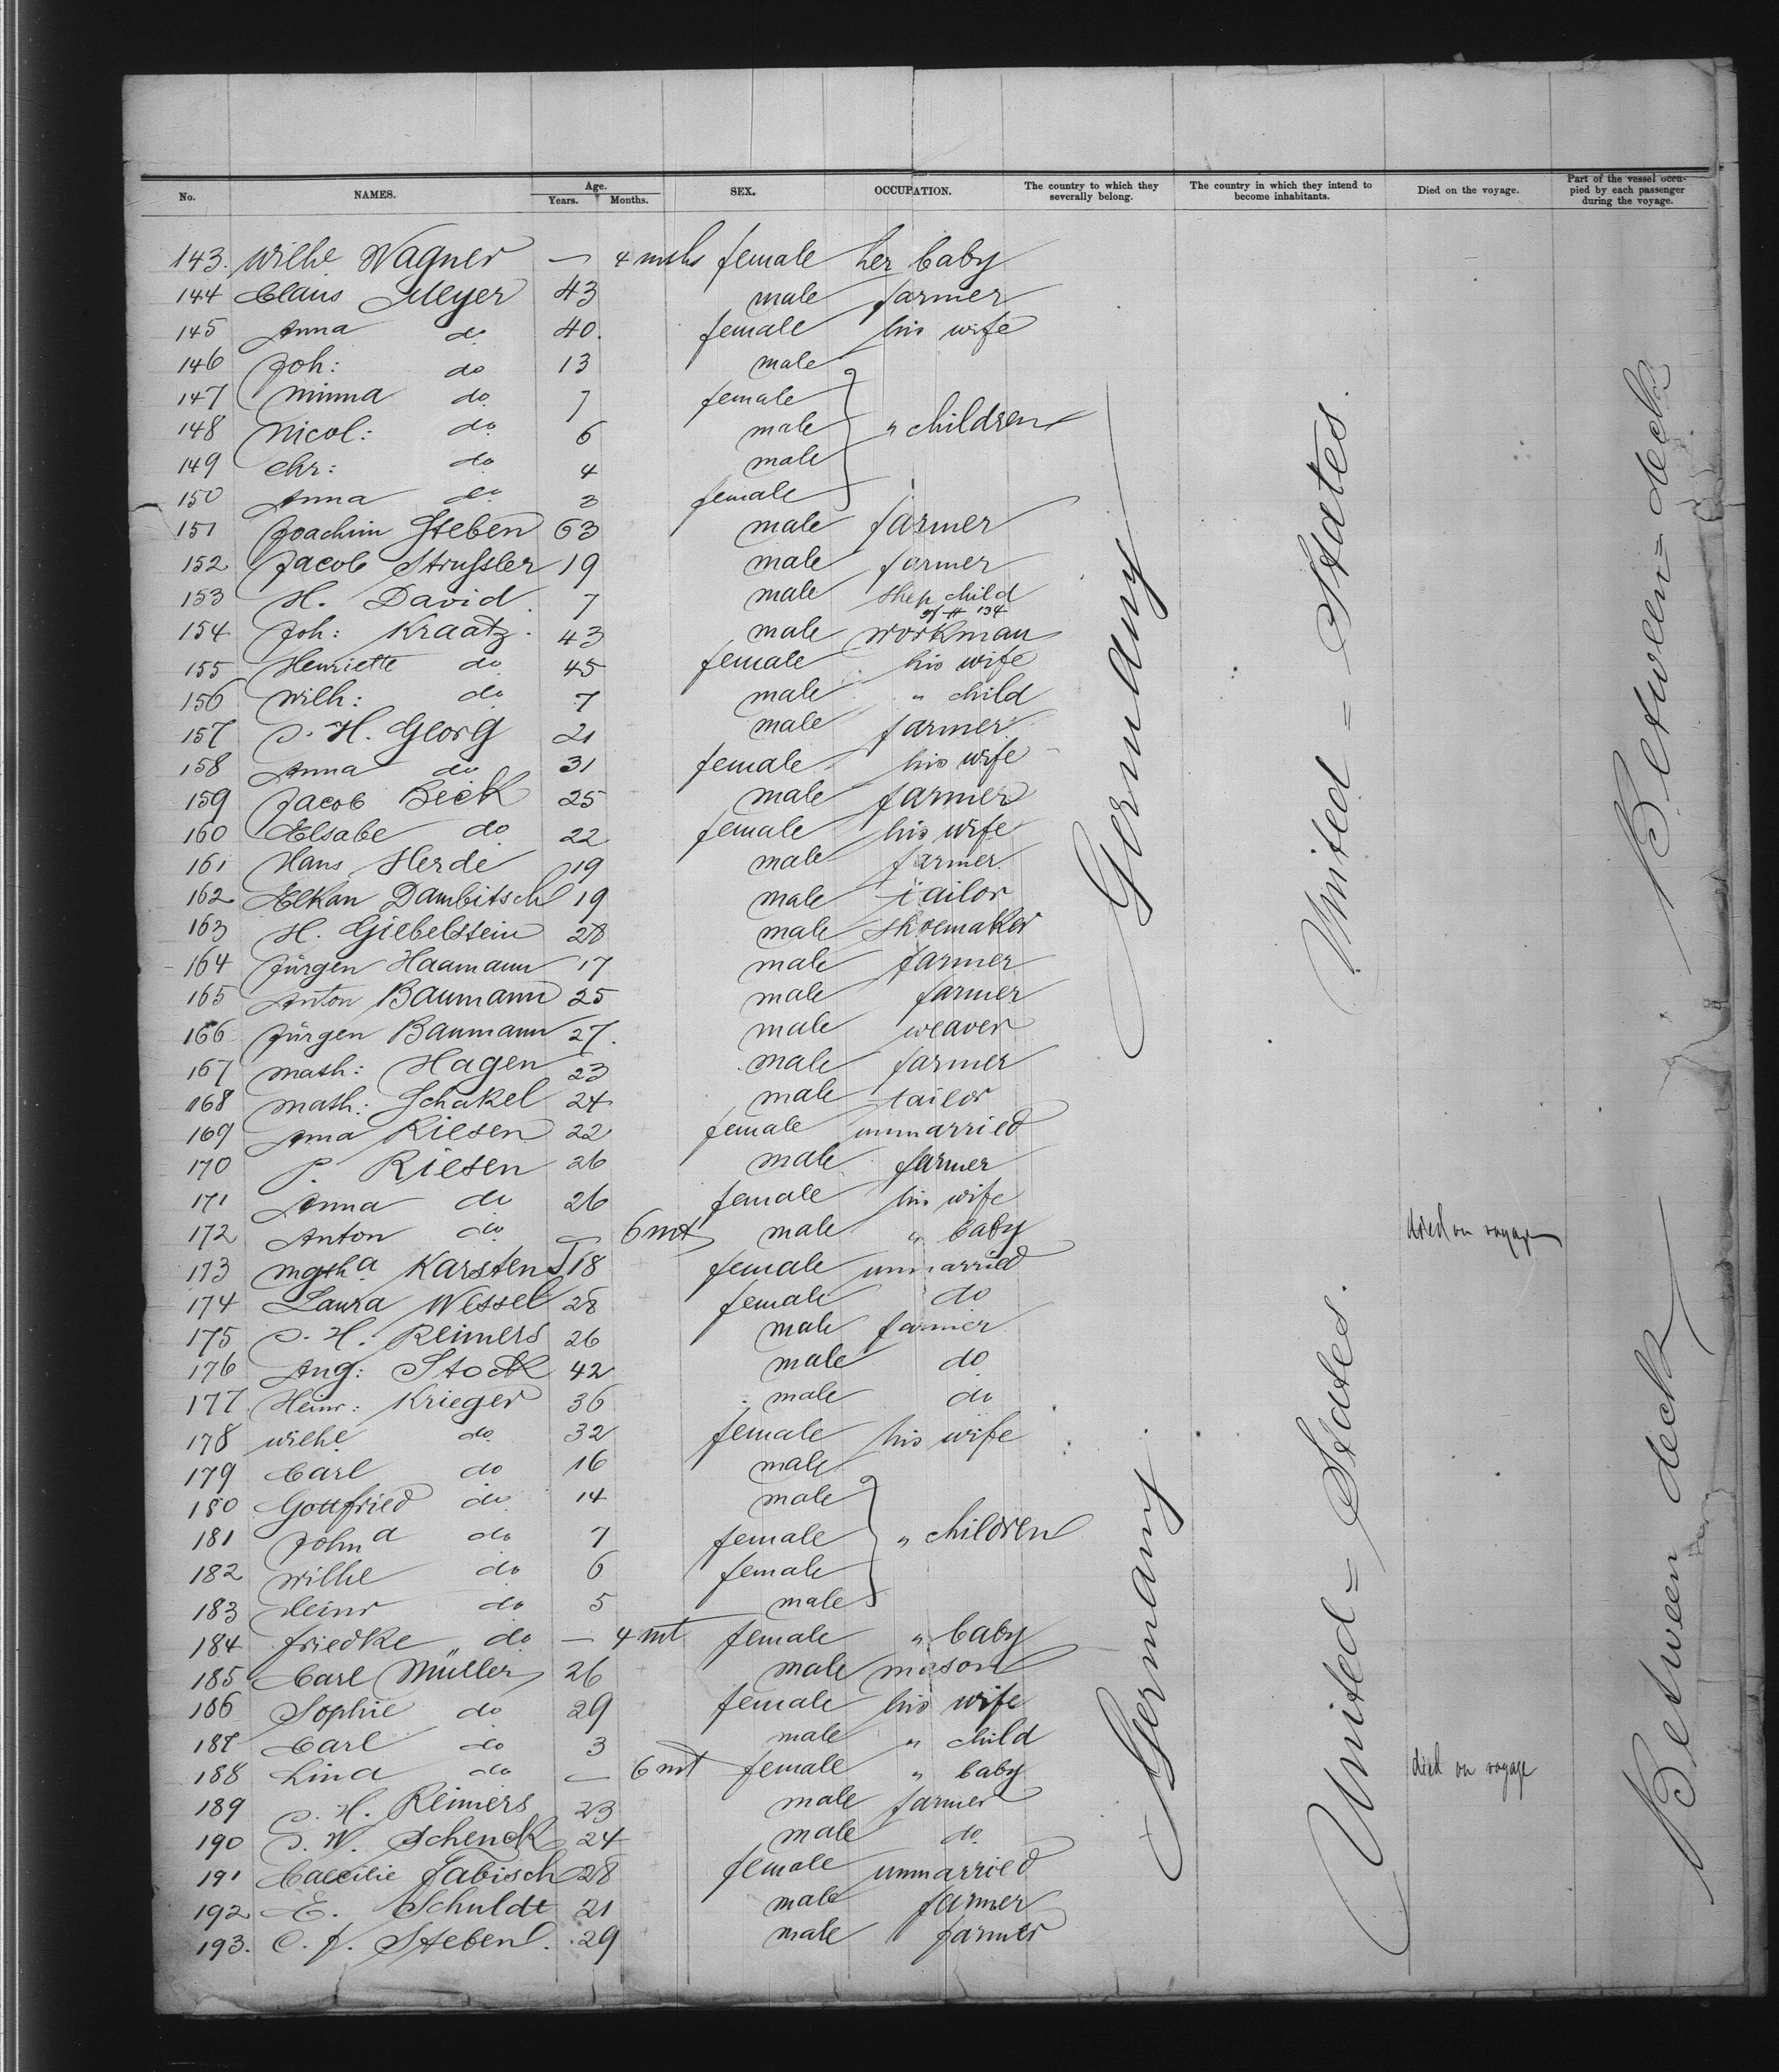 No. NAMES. Age. Years. Months. SEX. OCCUPATION. The country to which they severally belong. The country in which they intend to become inhabitants. Died on the voyage. Part of the vessel occupied by each passenger during the voyage.
143. Wilhe Wagner — 4 mths female her baby
144 Claus Meyer 43 male farmer
145 Anna do 40. female his wife
146 Joh: do 13 male
147 Minna do 7 female
148 Nicol: do 6 male " children
149 Chr: do 4 male
150 Anna do 3 female
151 Joachim Steben 63 male farmer
152 Jacob Strussler 19 male farmer
153 H. David 7 male step child of # 134
154 Joh: Kraatz. 43 male workman
155 Henriette do 45 female his wife
156 Wilh: do 7 male " child
157 J. H. Georg 21 male farmer
158 Anna do 31 female his wife
159 Jacob Beck 25 male farmer
160 Elsabe do 22 female his wife
161 Hans Herde 19 male farmer
162 Elkan Dambitsch 19 male tailor
163 H. Giebelstein 28 male shoemaker
164 Jürgen Haamann 17 male farmer
165 Anton Baumann 25 male farmer
166 Jürgen Baumann 27. male weaver
167 Math: Hagen 23 male farmer
168 Math: Schakel 24 male tailor
169 Anna Riesen 22 female unmarried
170 P. Riesen 26 male farmer
171 Anna do 26 female his wife
172 Anton do — 6 mt male " baby died on voyage
173 Mgtha Karstens 18 female unmarried
174 Laura Wessel 28 female do
175 J. H. Reimers 26 male farmer
176 Aug: Stock 42 male do
177 Heinr: Krieger 36 male do
178 Wilhe do 32 female his wife
179 Carl do 16 male
180 Gottfried do 14 male
181 Johna do 7 female " children
182 Wilhe do 6 female
183 Heinr do 5 male
184 Friedke " do — 4 mt female " baby
185 Carl Müller 26 male mason
186 Sophie do 29 female his wife
187 Carl do 3 male " child
188 Lina do — 6 mt female " baby died on voyage
189 J. H. Reimers 23 male farmer
190 J. W. Schenck 24 male do
191 Caecilie Jabisch 28 female unmarried
192 E. Schuldt 21 male farmer
193. C. J. Steben. 29 male farmer
Germany
United = States.
Between = deck
Germany
United = States.
Between deck